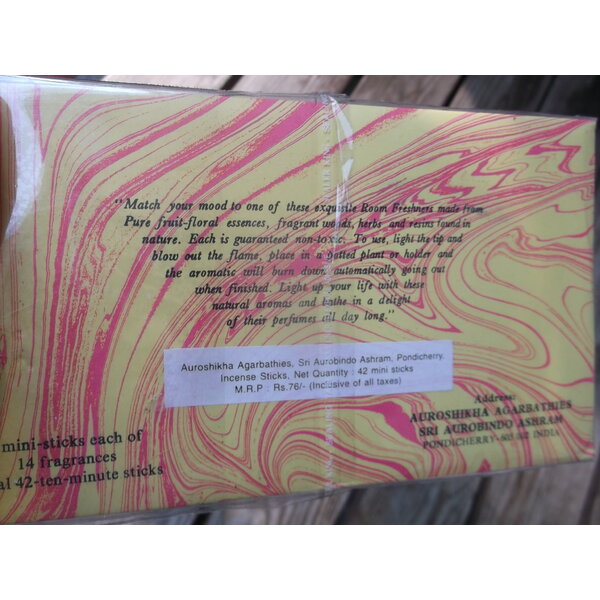 "Match your mood to one of these exquisite Room Freshners made from
Pure fruit-floral essences, fragrant woods, herbs and resins found in
nature. Each is guaranteed non-toxic. To use, light the tip and
blow out the flame, place in a potted plant or holder and
the aromatic will burn down automatically going out
when finished. Light up your life with these
natural aromas and bathe in a delight
of their perfumes all day long."
Auroshikha Agarbathies, Sri Aurobindo Ashram, Pondicherry.
Incense Sticks, Net Quantity : 42 mini sticks
M.R.P : Rs.76/- (Inclusive of all taxes)
mini-sticks each of
14 fragrances
42-ten-minute sticks
Address:
AUROSHIKHA AGARBATHIES
SRI AUROBINDO ASHRAM
PONDICHERRY-605 002 INDIA